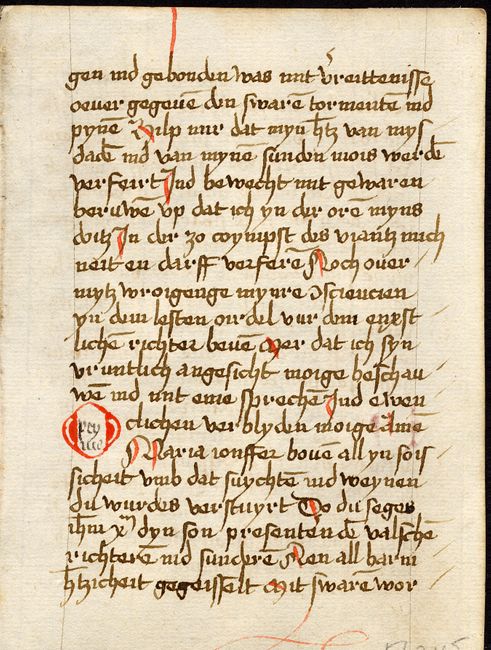 gen ind gebonden was mit vreittenisse
oeuer gegeuē den swarē tormentē ind
pynē Hilp mir dat myn htz van mys
dadē ind van mynē sunden mois werdē
verfeirt Ind bewecht mit gewaren
beruwē vp dat ich yn der orē myns
doitz In der zo coympst des viantz mich
neit en darff verferē Noch ouer
mytz wroigenge mynre ɔsciencien
yn dem lesten oirdel vur dem enxst
lichē richter beuē Mer dat ich syn
vruntlich angesicht moige beschau
wē ind mit eme sprechen Ind ewen
clichen verblyden moige Amē
Maria ionffer bouē all yn sois
sicheit vmb dat suychten ind weynen
du wurdes verstuyrt Do du seges
ihm xp̄ dyn son presenten dē valschē
richterē ind sunderē Men all barm
htzicheit gegeisselt Mit swarē wor